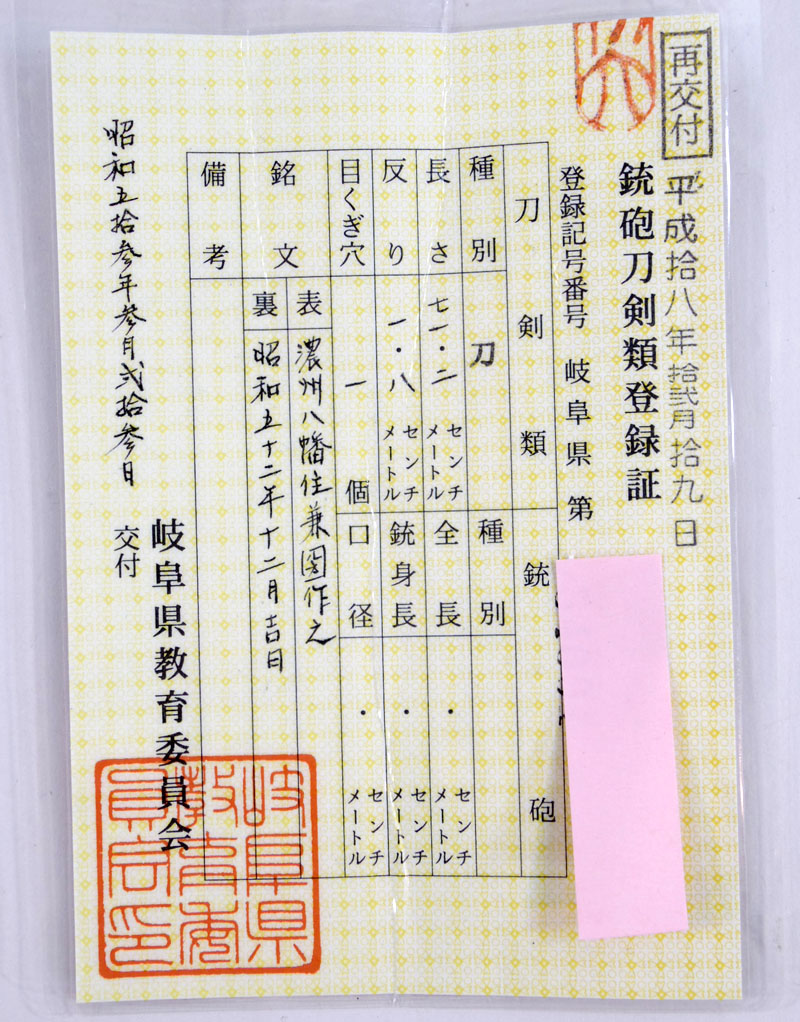 再交付
平成拾八年拾弐月拾九日
銃砲刀剣類登録証
登録記号番号 岐阜県 第
刀剣類
銃砲
種別
刀
長さ
七一・二
センチメートル
反り
一・八
センチメートル
目くぎ穴
一
個
種別
全長
・
センチメートル
銃身長
・
センチメートル
口径
・
センチメートル
銘文
表
濃州八幡住兼圀作之
裏
昭和五十二年十二月吉日
備考
昭和五拾参年参月弐拾参日
交付
岐阜県教育委員会
岐阜県
教育委
員会印